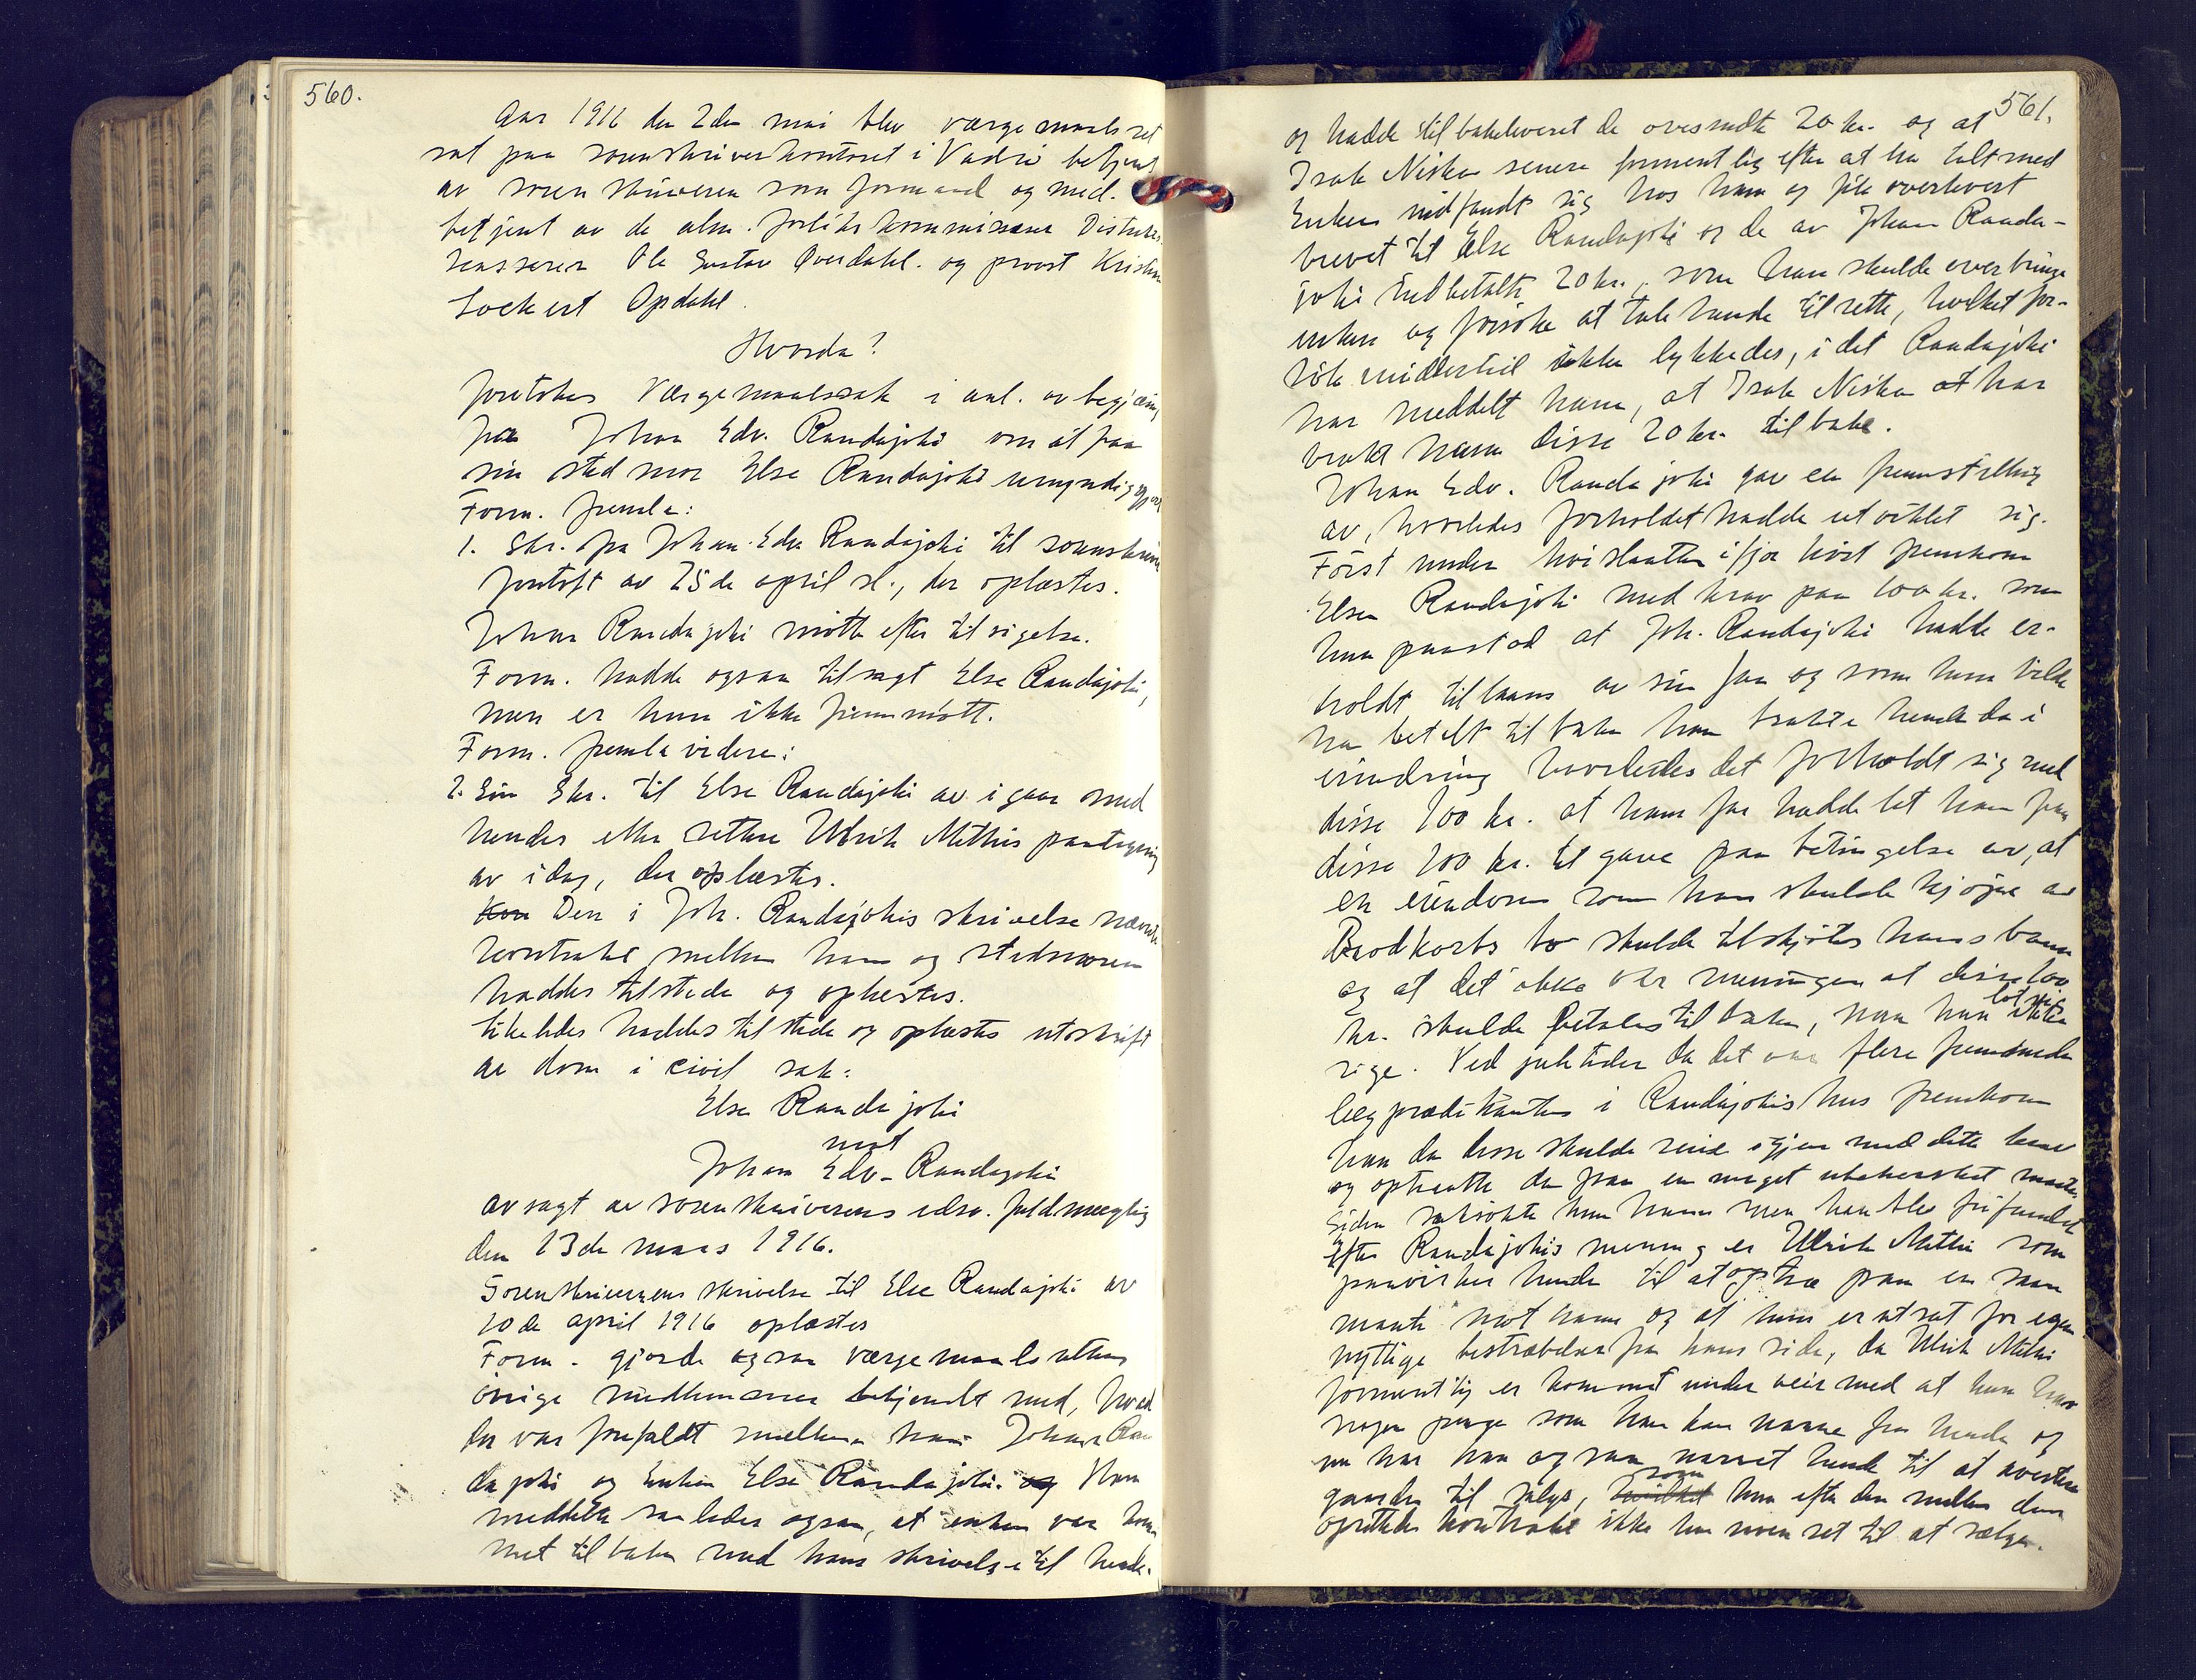 560.
Aar 1916 den 2den mai blev vergemaalsret
sat paa sorenskriverkontoret i Vadsö betjent
av sorenskriveren som formand og med-
betjent av de alm. forlikskommissærer Distrikts-
kasserer Ole Gustav Overdahl. og provst Kristian
Lockert Opdahl.
Hvorda?
foretokes Værgemaalssak i anl. av begjæring
fra Johan Edv. Randajoki om at faa
sin stedmor Else Randajoki umyndiggjort
Form. fremla:
1. Skr. fra Johan Edv. Randajoki til sorenskriver
Jentoft av 25de april sl., der oplæstes.
Johan Randajoki mötte efter tilsigelse.
Form. hadde ogsaa tilsagt Else Randajoki,
men er hun ikke fremmött.
Form. fremla videre:
2. Sin Skr. til Else Randajoki av igaar med
hendes eller rettere Ulrik Mathis paategning
av idag, der oplæstes.
Kon Den i Joh. Randajokis skrivelse nævnte
kontrakt mellem ham og stedmoren
haddes tilstede og oplæstes.
Likeledes haddes tilstede og oplæstes utskrift
av dom i civil sak:
Else Randajoki
mot
Johan Edv. Randajoki
avsagt av sorenskriverens edsv. fuldmægtig
den 13de mars 1916.
Sorenskriverens skrivelse til Else Randajoki av
10de april 1916 oplæstes
Form. gjorde ogsaa værgemaalsrettens
övrige medlemmer bekjendt med, hvad
der var forefaldt mellem ham Johan Ran
dajoki og enken Else Randajoki. og Han
meddelte saaledes ogsaa, at enken var kom-
met tilbake med hans skrivelse til hende.
561.
og hadde tilbakeleveret de oversendte 20 kr. og at
Isak Niska senere formentlig efter at ha talt med
Enken indfandt sig hos ham og fik overlevert
brevet til Else Randajoki og de av Johan Randa-
joki indbetalte 20 kr., som han skulde overbringe
enken og forsöke at tale hende tilrette, hvilket for-
sök imidlertid ikke lykkedes, i det Randajoki
har meddelt ham, at Isak Niska at har
brakt ham disse 20 kr. tilbake.
Johan Edv. Randajoki gav en fremstilling
av, hvorledes forholdet hadde utviklet sig.
Först under höislaatten ifjor höst fremkom
Else Randajoki med krav paa 100 kr. som
hun paastod at Joh. Randajoki hadde er-
holdt tillaans av sin far og som hun vilde
ha betalt tilbake han brakte hende da i
erindring hvorledes det forholdt sig med
disse 100 kr. at hans far hadde lat ham faa
disse 100 kr. til gave paa betingelse av, at
en eiendom som han skulde kjøpe av
Brodtkorbs bo skulde tilskjötes hans barn
og at det ikke var meningen at disse 100
kr. skulde betales tilbake, men hun lot sig ikke
sige. Ved juletider da det var flere fremmede
lægprædikanter i Randajokis hus fremkom
hun da disse skulde reise igjen med dette krav
og optraatte da paa en meget ubehersket maate.
Siden saksökte hun ham men han blev frifundet
Efter Randajokis mening er Ulrik Mathis som
paavirker hende til at optræ paa en saan
maate mot ham og at hun er utsat for egen-
nyttige bestræbelser fra hans side, da Ulrik Mathis
formentlig er kommet under veir med at hun har
nogen penge som han kan narre fra hende og
nu har han ogsaa narret hende til at avertere
gaarden til salgs, hvilket som hun efter den mellem dem
oprettede kontrakt ikke har noen ret til at sælge.